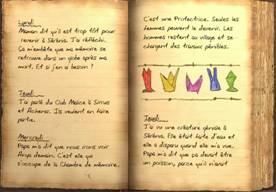 Lundi
Maman dit qu'il est trop tôt pour
revenir à Skribnia. J'ai réfléchi.
Ça m'embête que ma mémoire se
retrouve dans un globe après ma
mort. Et si j'en ai besoin ?
Jeudi
J'ai parlé du Club Melice à Sirrus
et Achenar. Ils veulent en faire
partie.
Mercredi
Papa m'a dit que nous irons voir
Anya demain. C'est elle qui
s'occupe de la Chambre de mémoire.
C'est une Protectrice. Seules les
femmes peuvent le devenir. Les
hommes restent au village et se
chargent des travaux pénibles.
Jeudi
J'ai vu une créature géniale à
Skribnia. Elle était faite d'eau et
elle a disparu quand elle m'a vue.
Papa m'a dit que ça devait être
un poisson, parce qu'il n'avait